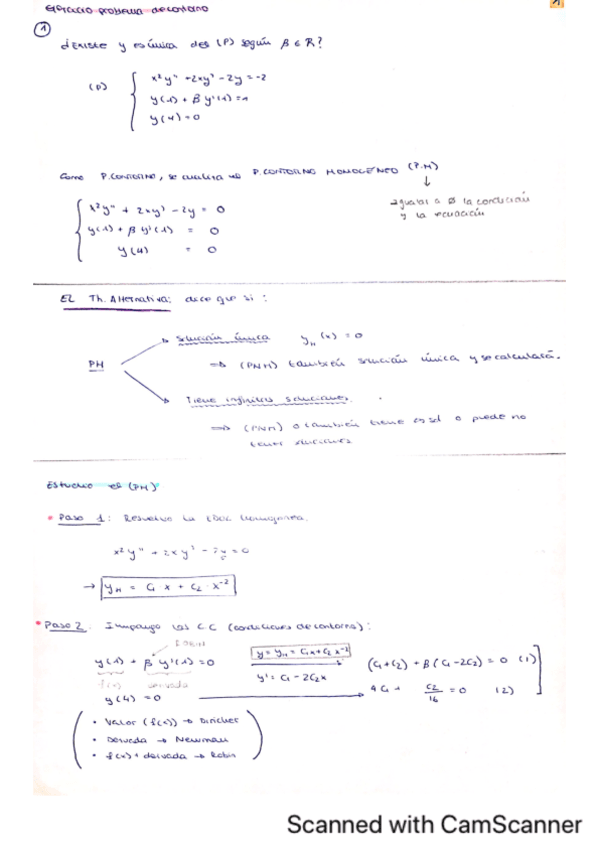 Ejercicio problema de contorno
1
¿Existe y es única des (P) según β ∈ R?
(P) { x²y'' + 2xy' - 2y = -2
y(1) + β y'(1) = 1
y(4) = 0
Como P.CONTORNO, se analiza un P.CONTORNO HOMOGÉNEO (P.H)
↓
igualar a 0 la condición
y la ecuación
{ x²y'' + 2xy' - 2y = 0
y(1) + β y'(1) = 0
y(4) = 0
EL Th. Alternativa: dice que si:
solución única y_H(x) = 0
⇒ (PNH) también solución única y se calculará.
PH
Tiene infinitas soluciones.
⇒ (PNH) o también tiene ∞ sol o puede no
tener soluciones
Estudio el (PH)
* Paso 1: Resuelvo la EDO homogénea.
x²y'' + 2xy' - 2y = 0
→ y_H = C₁ x + C₂ · x⁻²
* Paso 2. Impongo las CC (condiciones de contorno):
y(1) + β y'(1) = 0
f(x) derivada
y(4) = 0
y = y_H = C₁x + C₂x⁻²
y' = C₁ - 2C₂x
(C₁ + C₂) + β(C₁ - 2C₂) = 0 (1)
4C₁ + C₂/16 = 0 (2)
• Valor (f(x)) → Diricher
• Derivada → Newman
• f(x) + derivada → Robin
Scanned with CamScanner